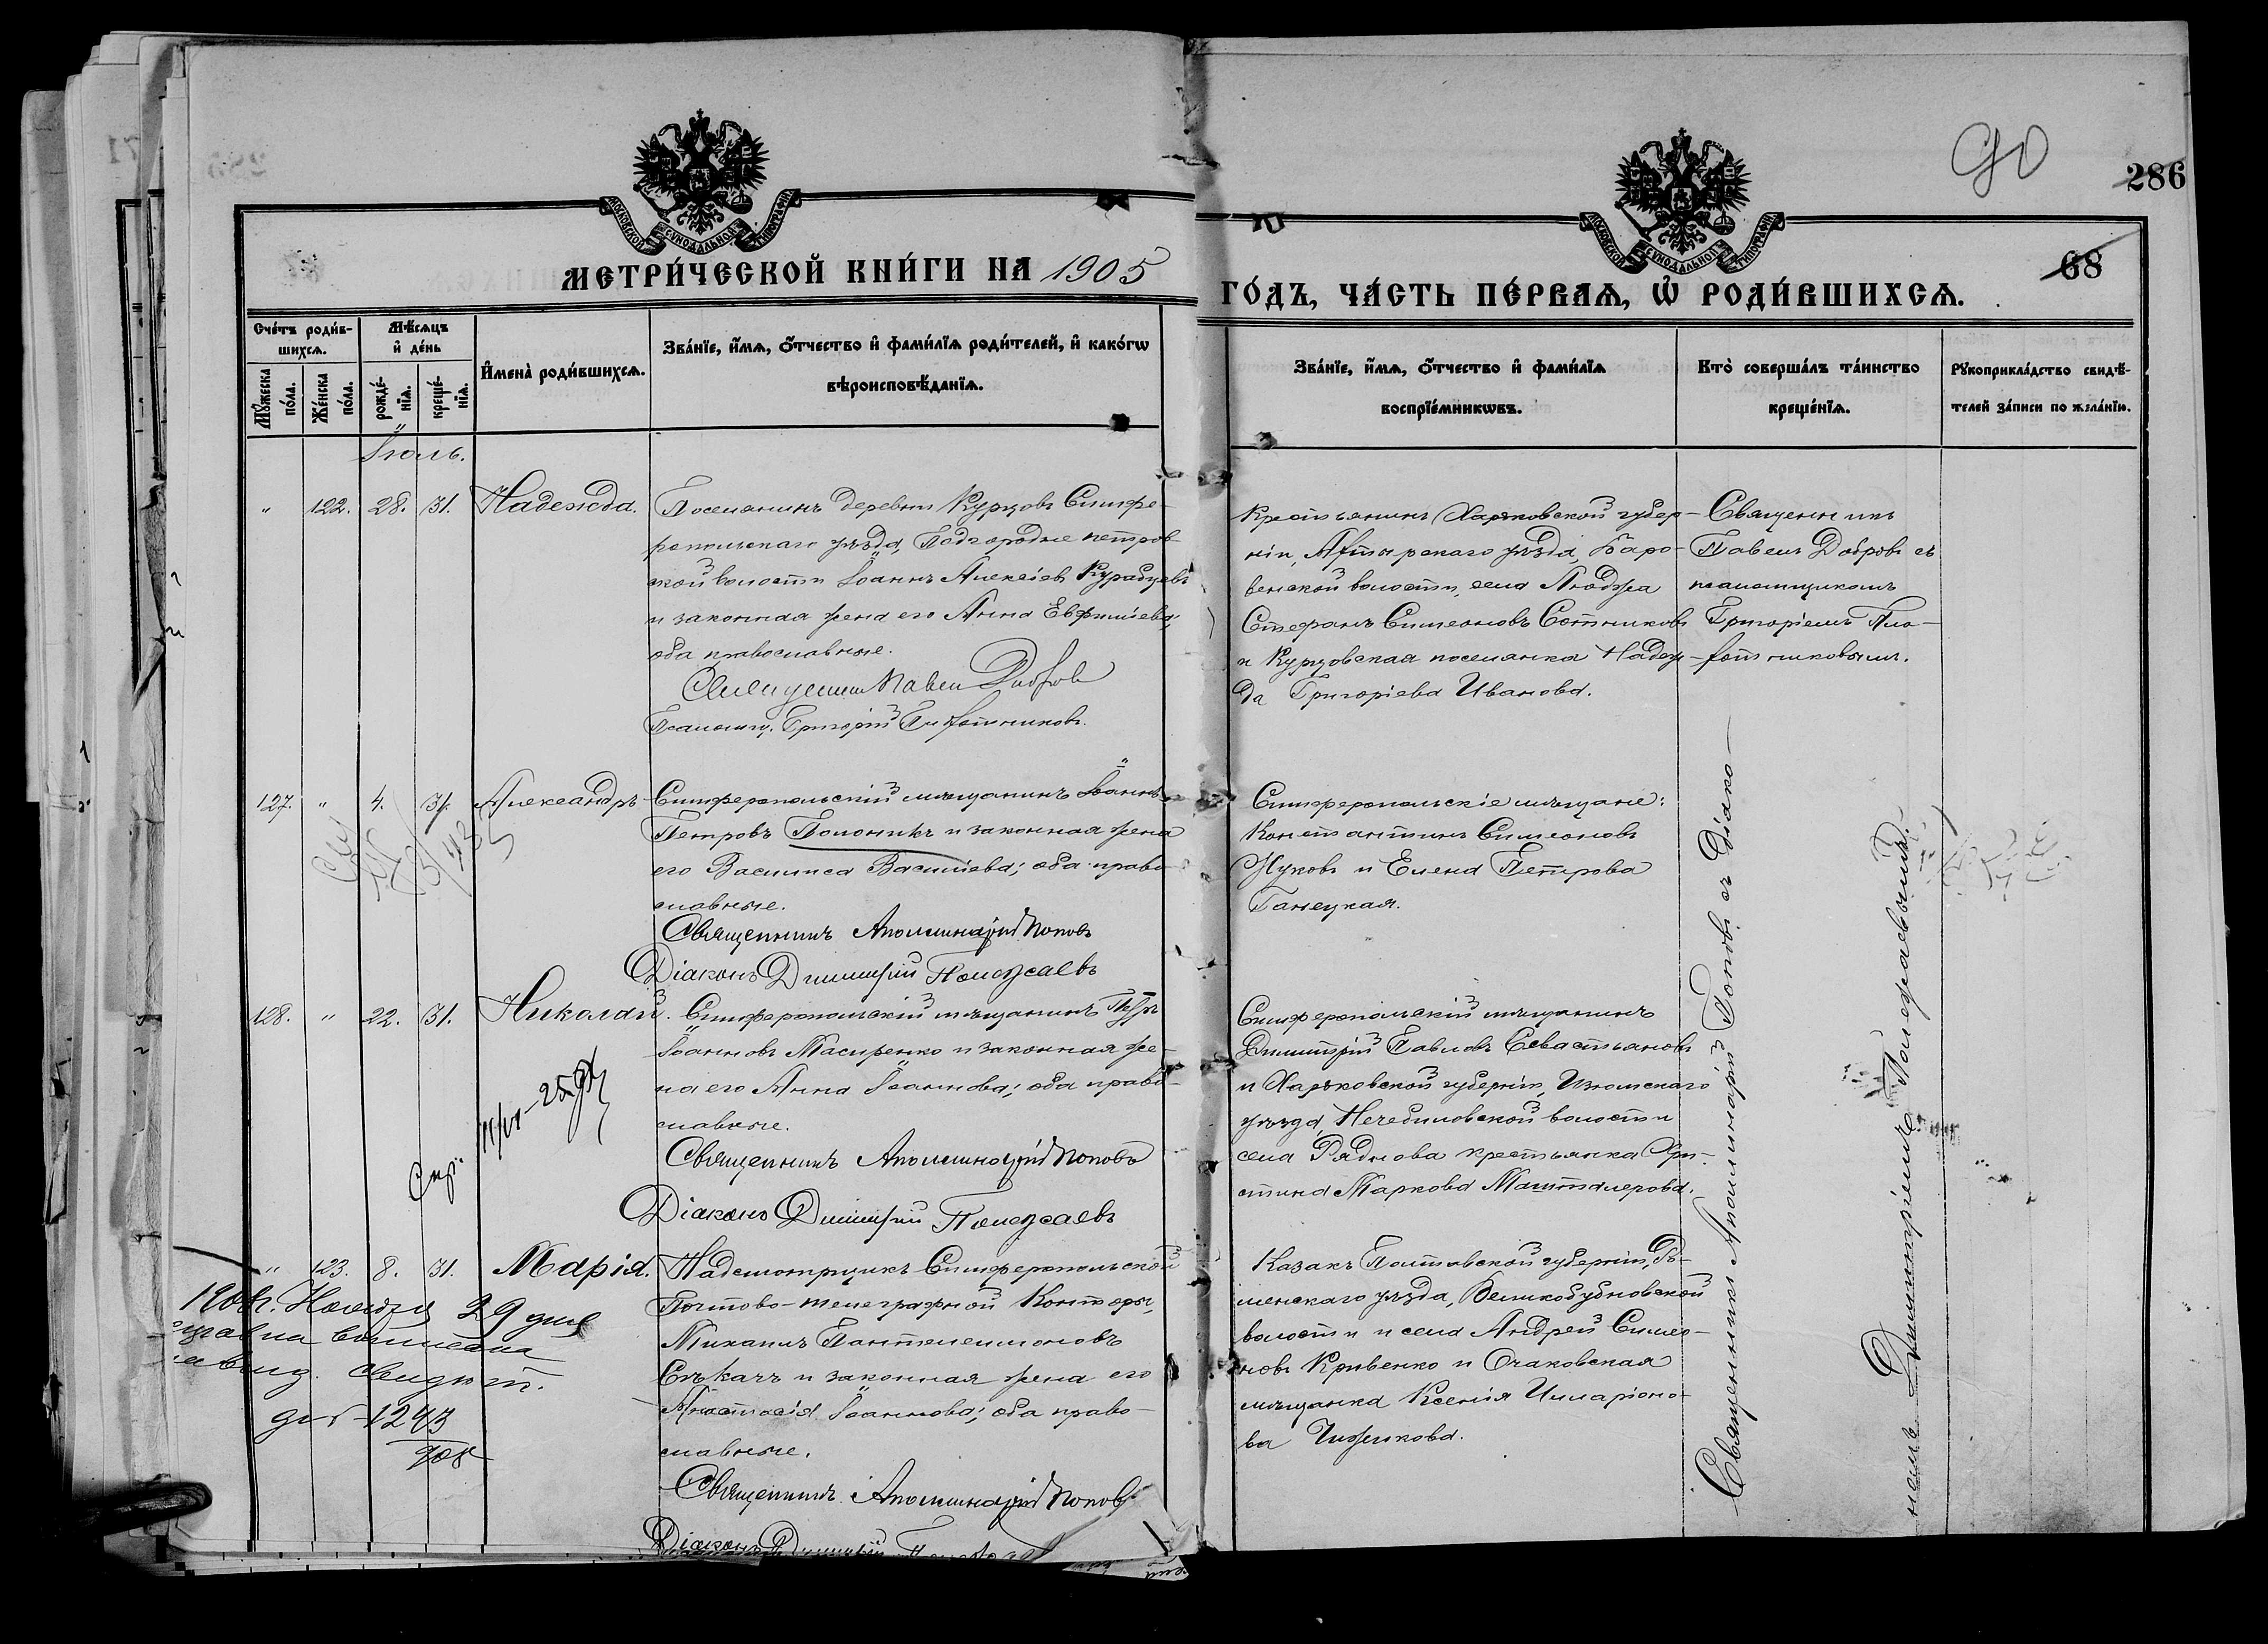 90
286
68
МЕТРИ́ЧЕСКОЙ КНИ́ГИ НА 1905
ГО́ДЪ, ЧА́СТЬ ПЕ́РВАѦ, Ѡ РОДИ́ВШИХСѦ.
Сче́тъ роди́в-
шихсѧ.
Мꙋ́жеска по́ла.
Же́нска по́ла.
Мѣ́сѧцъ и де́нь
рожде́-
нїѧ.
креще́-
нїѧ.
И҆мена̀ роди́вшихсѧ.
Зва́нїе, и҆́мѧ, ѻ҆́тчество и҆ фами́лїѧ роди́телей, и҆ како́гѡ
вѣроисповѣ́данїѧ.
Зва́нїе, и҆́мѧ, ѻ҆́тчество и҆ фами́лїѧ
воспрїе́мникѡвъ.
Кто̀ соверша́лъ та́инство
креще́нїѧ.
Рꙋкоприкла́дство свидѣ́-
телей за́писи по жела́нїю.
Іюль.
" 122. 28. 31. Надежда.
Поселянинъ деревни Курцовъ Симфе-
ропольскаго уѣзда, Подгородне петров-
ской волости Іоаннъ Алексіевъ Курабцевъ
и законная жена его Анна Евфиміева,
оба православные.
Священникъ Павелъ Добровъ
Псаломщ. Григорій Плотниковъ.
Крестьянинъ Харьковской губер-
ніи, Ахтырскаго уѣзда, Боро-
венской волости, села Люджа
Стефанъ Симеоновъ Сотниковъ
и Курцовская поселянка Надеж-
да Григоріева Иванова.
Священникъ
Павелъ Добровъ съ
псаломщикомъ
Григоріемъ Пло-
тниковымъ.
127. " 4. 31. Александръ
Симферопольскій мѣщанинъ Іоаннъ
Петровъ Полоникъ и законная жена
его Василиса Василіева; оба право-
славные.
Священникъ Аполлинарій Поповъ
Діаконъ Димитрій Полежаевъ
Симферопольскіе мѣщане:
Константинъ Симеоновъ
Жуковъ и Елена Петрова
Ганецкая.
128. " 22. 31. Николай.
Симферопольскій мѣщанинъ Петръ
Іоанновъ Масиренко и законная же-
на его Анна Іоаннова; оба право-
славные.
Священникъ Аполлинарій Поповъ
Діаконъ Димитрій Полежаевъ
Симферопольскій мѣщанинъ
Димитрій Павловъ Севастьяновъ
и Харьковской губерніи, Изюмскаго
уѣзда, волости
села Ряднова крестьянка Хри-
стина Маркова Машталерова.
" 123. 8. 31. Марія.
Надсмотрщикъ Симферопольской
Почтово-телеграфной Конторы,
Михаилъ Пантелеимоновъ
Сѣкачъ и законная жена его
Анастасія Іоаннова; оба право-
славные.
Священникъ Аполлинарій Поповъ
Діаконъ Димитрій
Казакъ Полтавской губерніи, Ро-
менскаго уѣзда, Великобубновской
волости и села Андрей Симео-
новъ Кривенко и Очаковская
мѣщанка Ксенія Илларіоно-
ва Чижикова.
Священникъ Аполлинарій Поповъ съ Діако-
номъ Димитріемъ Полежаевымъ.
29 дня
1243
908